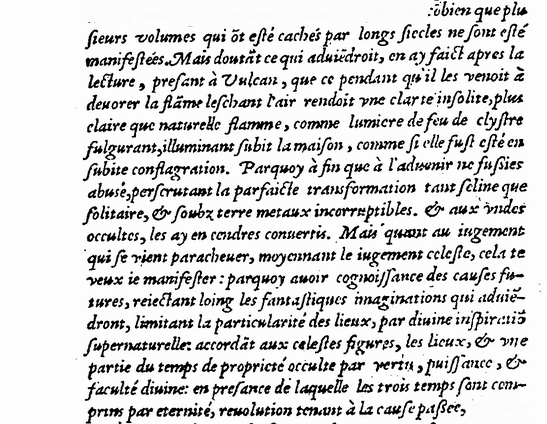 cõbien que plu
sieurs volumes qui õt esté cachés par longs siecles ne sont esté
manifestées. Mais doutãt ce qui aduiẽdroit, en ay faict apres la
lecture, presant à Vulcan, que ce pendant qu'il les venoit à
deuorer la flãme leschant l'air rendoit vne clarte insolite, plus
claire que naturelle flamme, comme lumiere de feu de clystre
fulgurant, illuminant subit la maison, comme si elle fust esté en
subite conflagration. Parquoy à fin que à l'aduenir ne fussies
abusé, perscrutant la parfaicte transformation tant seline que
solitaire, & soubz terre metaux incorruptibles. & aux vndes
occultes, les ay en cendres conuertis. Mais quant au iugement
qui se vient paracheuer, moyennant le iugement celeste, cela te
veux ie manifester : parquoy auoir cognoissance des causes fu-
tures, reiectant loing les fantastiques imaginations qui aduiẽ-
dront, limitant la particularité des lieux, par diuine inspiratiõ
supernaturelle: accordãt aux celestes figures, les lieux, & vne
partie du temps de proprieté occulte par vertu, puissance, &
faculté diuine: en presance de laquelle les trois temps sont com-
prins par eternité, reuolution tenant à la cause passee,